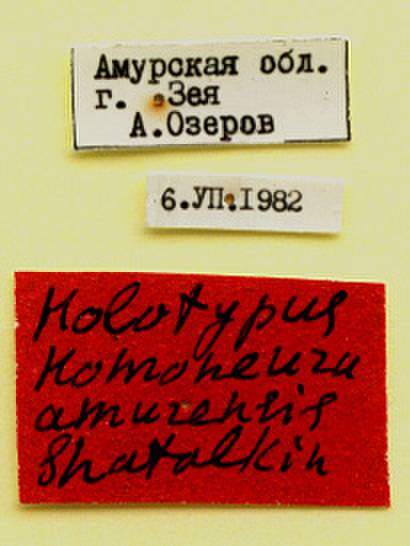 Амурская обл.
г. Зея
А.Озеров
6.УП.I982
Holotypus
Homoneura
amurensis
Shatalkin